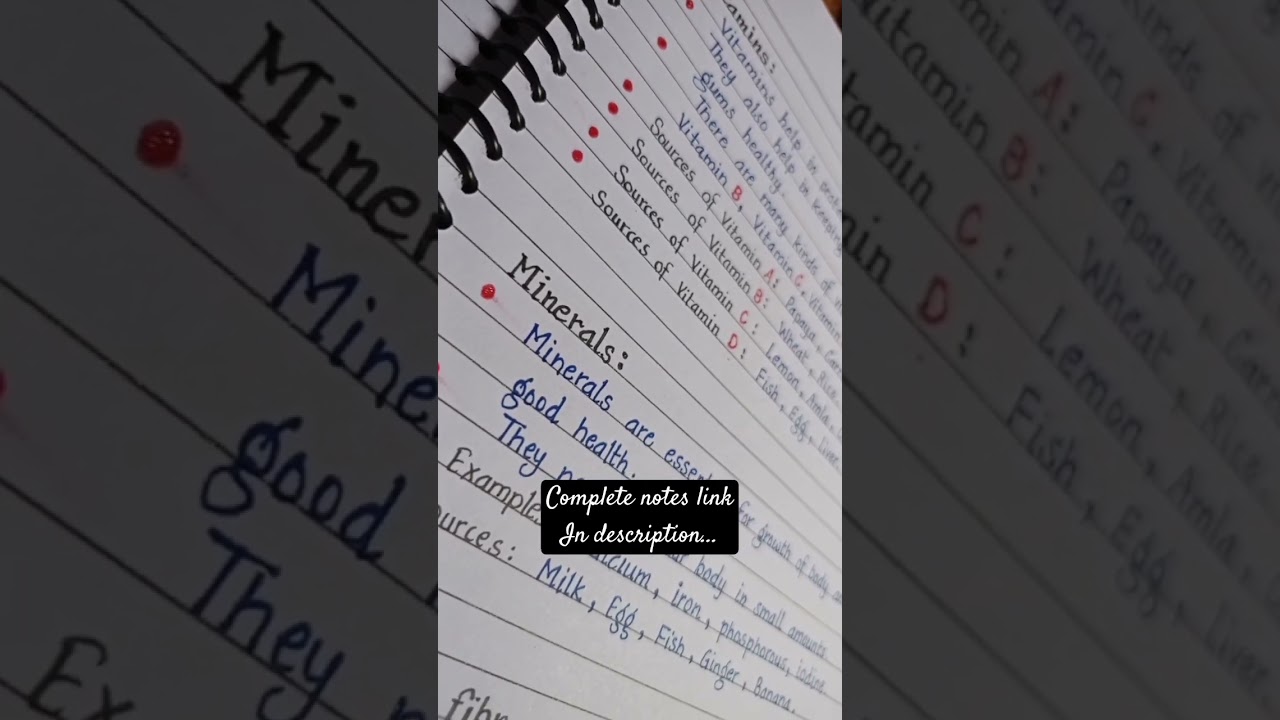 Vitamins help in
They also help in keeping
gums healthy.
There are many kinds of
Vitamin B, Vitamin C, Vitamin
Sources of Vitamin A: Papaya,
Sources of Vitamin B: Wheat, Rice
Sources of Vitamin C: Lemon, Amla,
Sources of Vitamin D: Fish, Egg, Liver
Minerals:
Minerals are for growth of body
good health.
They body in small amounts.
iron, phosphorous, iodine
Milk, Egg, Fish, Ginger, Banana.
Complete notes link
In description...